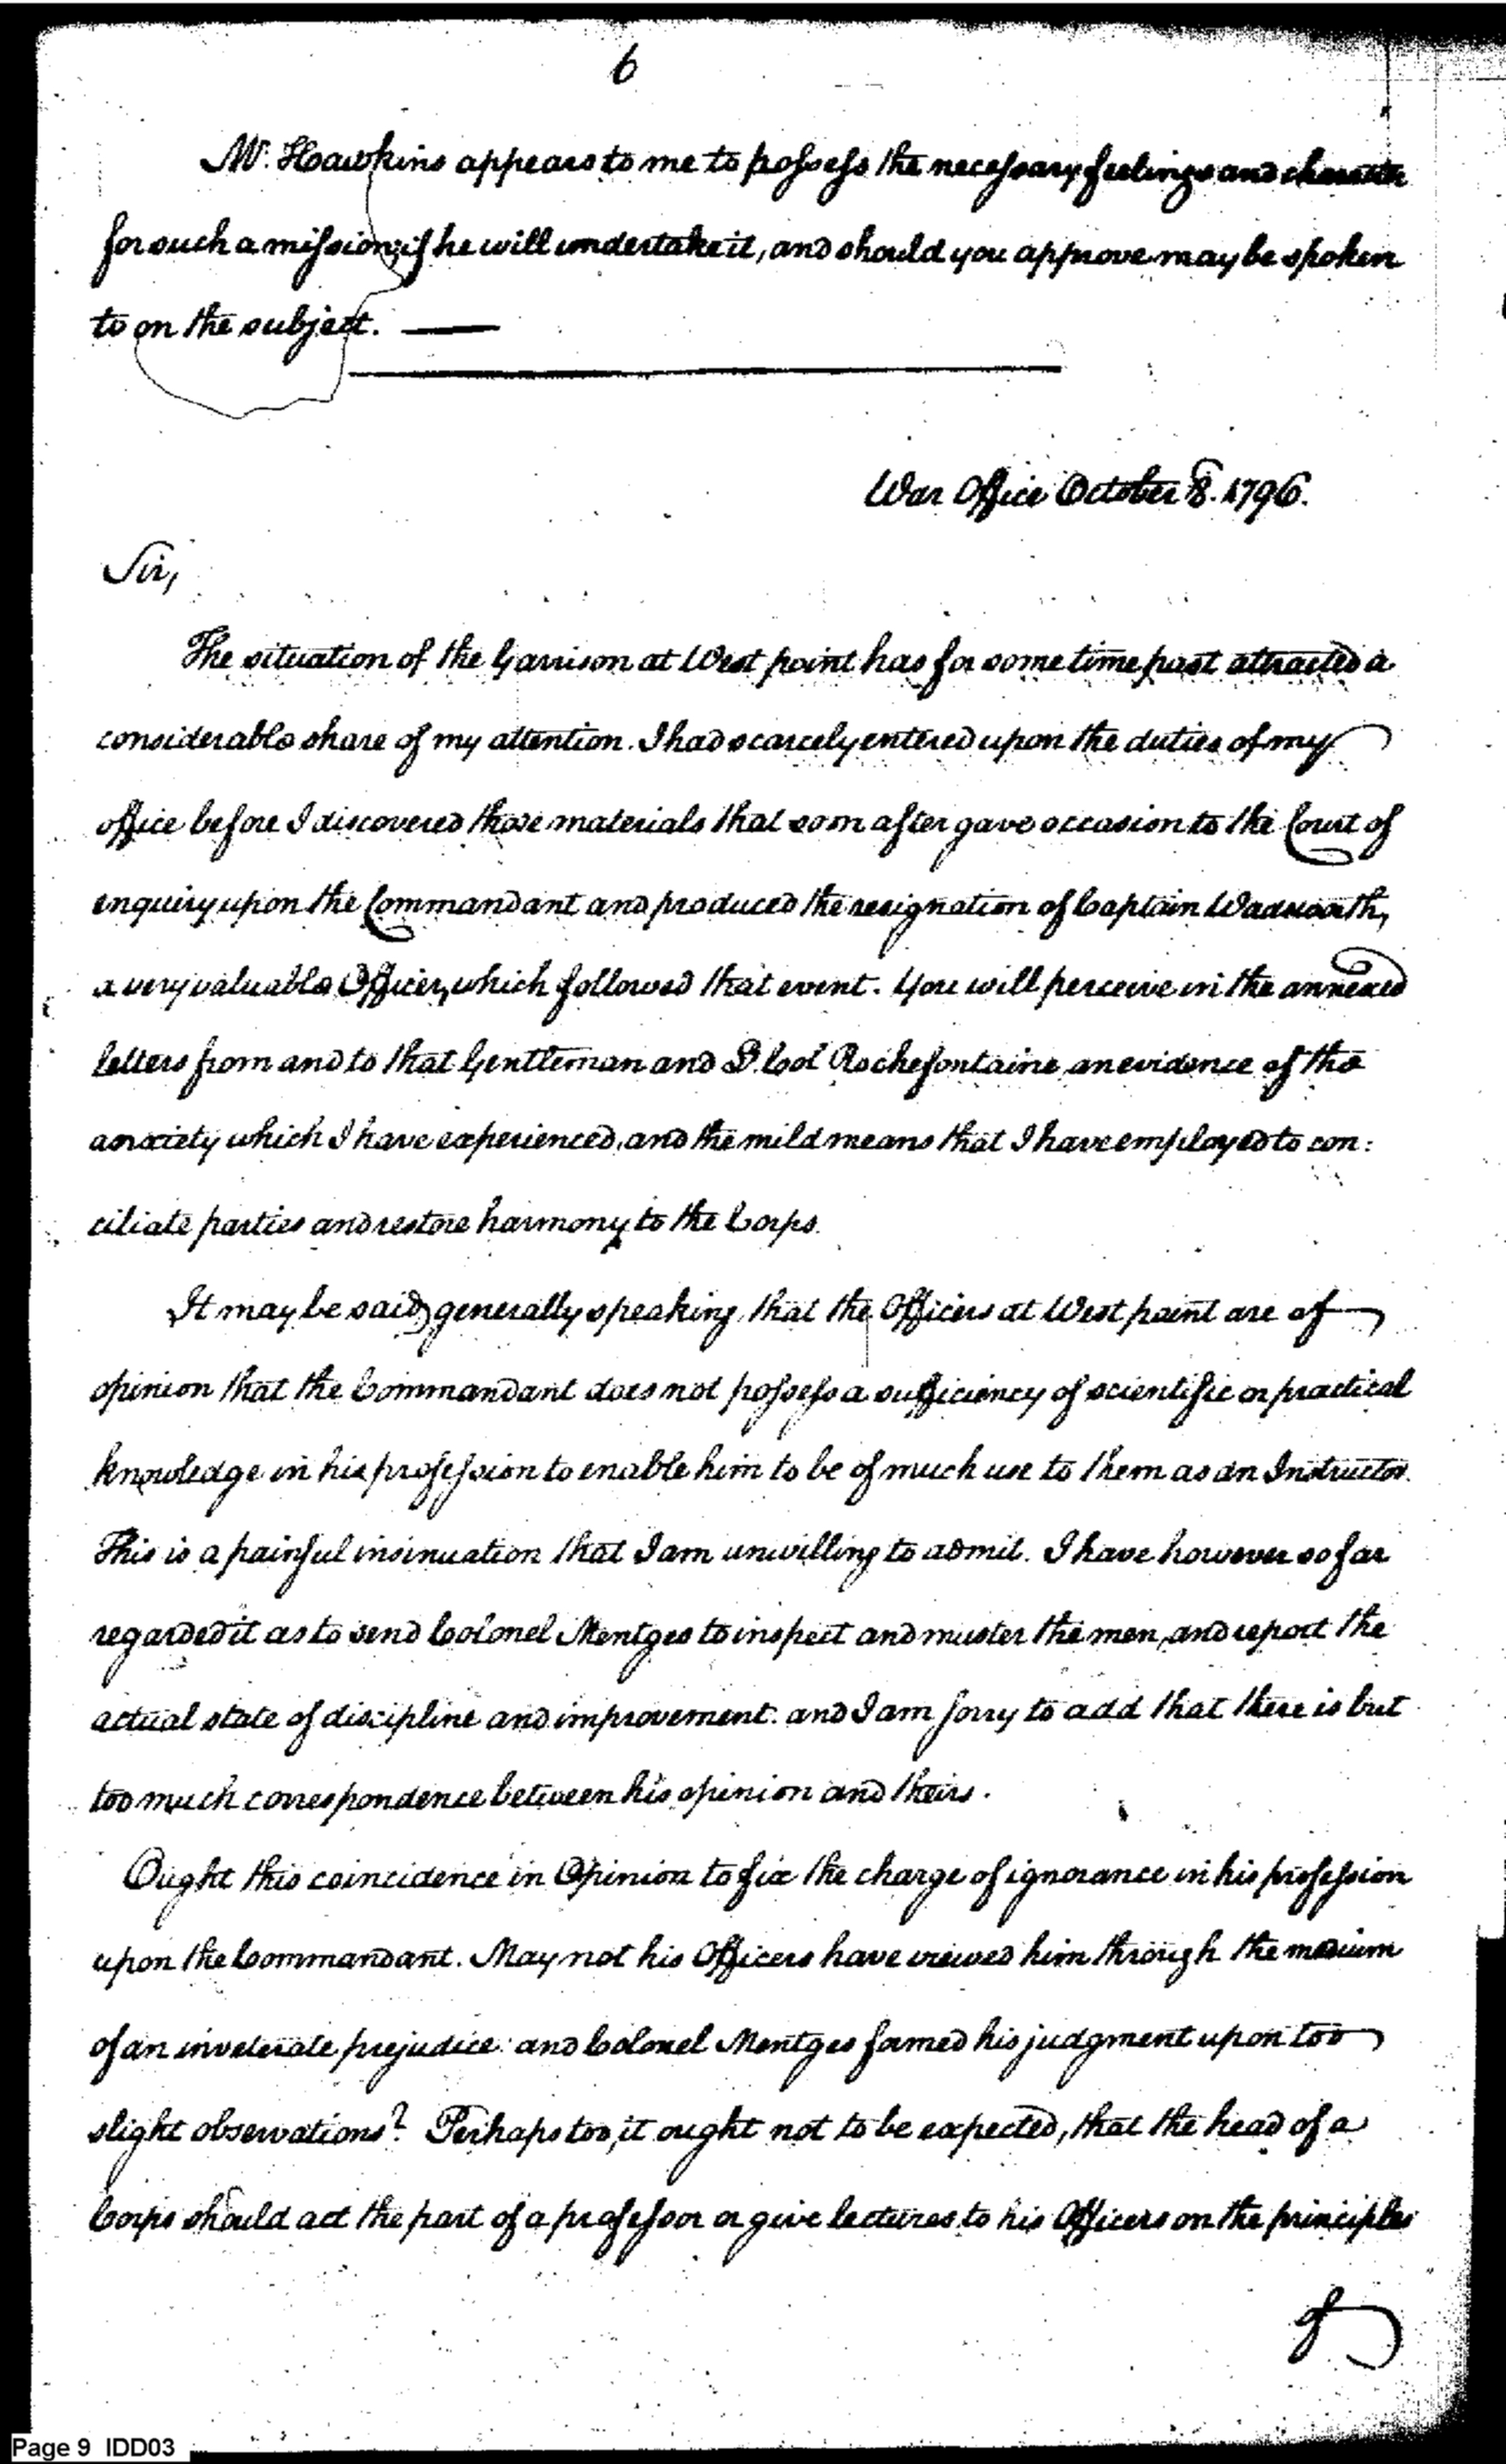 6
Mr. Hoawkins appears to me to possess the necessary feelings and character
for such a mission; if he will undertake it, and should you approve may be spoken
to on the subject. ——
War Office October 8. 1796.
Sir,
The situation of the Garrison at West point has for some time past attracted a
considerable share of my attention. I had scarcely entered upon the duties of my
office before I discovered those materials that soon after gave occasion to the Court of
enquiry upon the Commandant and produced the resignation of Captain Wadsworth,
a very valuable Officer, which followed that event. You will perceive in the annexed
letters from and to that Gentleman and Lt. Col Rochefontaine an evidence of the
anxiety which I have experienced, and the mild means that I have employed to con:
ciliate parties and restore harmony to the Corps.
It may be said, generally speaking, that the Officers at West point are of
opinion that the Commandant does not possess a sufficiency of scientific or practical
knowledge in his profession to enable him to be of much use to them as an Instructor.
This is a painful insinuation that I am unwilling to admit. I have however so far
regarded it as to send Colonel Mentges to inspect and muster the men, and report the
actual state of discipline and improvement. and I am sorry to add that there is but
too much correspondence between his opinion and theirs.
Ought this coincidence in Opinion to fix the charge of ignorance in his profession
upon the Commandant. May not his Officers have viewed him through the medium
of an inveterate prejudice: and Colonel Mentges formed his judgment upon too
slight observations? Perhaps too, it ought not to be expected, that the head of a
Corps should act the part of a professor or give lectures to his Officers on the principles
of
Page 9 IDD03